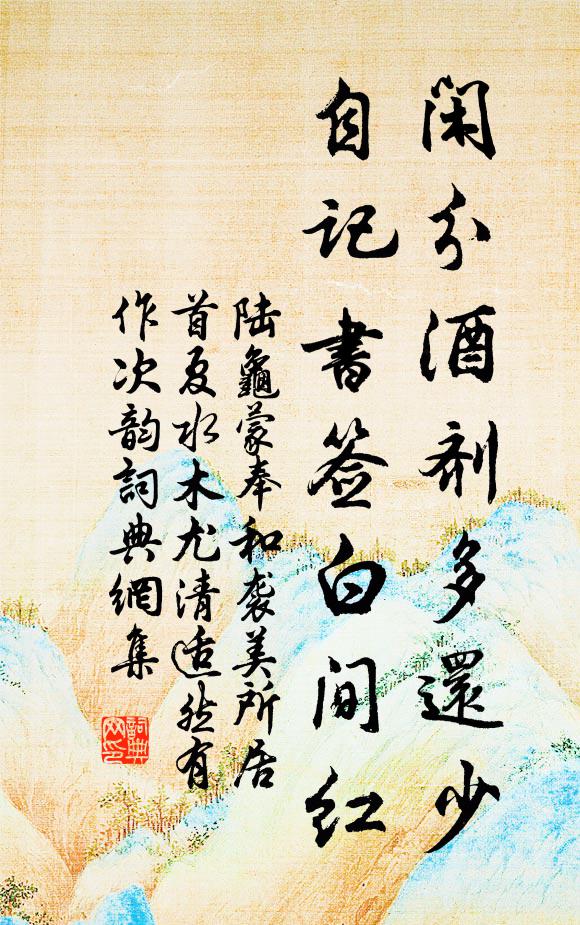 閑分酒劑多還少
自記書签白间红
陆龜蒙奉和袭美所居
首夏水木尤清适然有
作次韵詞典網集